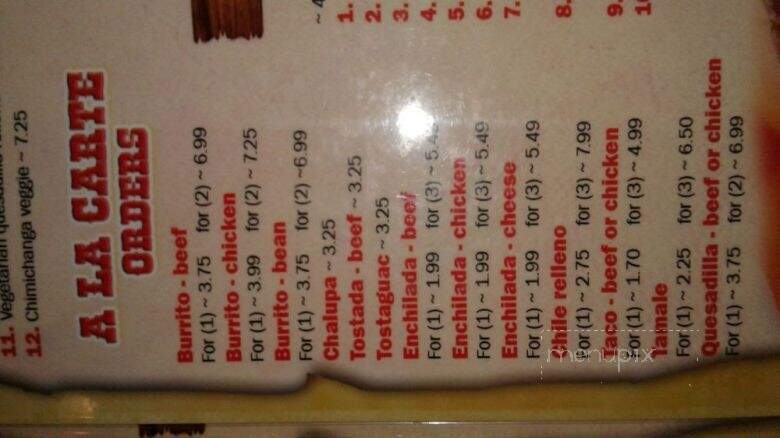 11. Vegetarian quesadilla
12. Chimichanga veggie ~ 7.25
A LA CARTE
ORDERS
Burrito - beef
For (1) ~ 3.75 for (2) ~ 6.99
Burrito - chicken
For (1) ~ 3.99 for (2) ~ 7.25
Burrito - bean
For (1) ~ 3.75 for (2) ~6.99
Chalupa ~ 3.25
Tostada - beef ~ 3.25
Tostaguac ~ 3.25
Enchilada - beef
For (1) ~ 1.99 for (3) ~ 5.49
Enchilada - chicken
For (1) ~ 1.99 for (3) ~ 5.49
Enchilada - cheese
For (1) ~ 1.99 for (3) ~ 5.49
Chile relleno
For (1) ~ 2.75 for (3) ~ 7.99
Taco - beef or chicken
For (1) ~ 1.70 for (3) ~ 4.99
Tamale
For (1) ~ 2.25 for (3) ~ 6.50
Quesadilla - beef or chicken
For (1) ~ 3.75 for (2) ~ 6.99
~ 4
1.
2.
3.
4.
5.
6.
7.
8.
9.
menupix